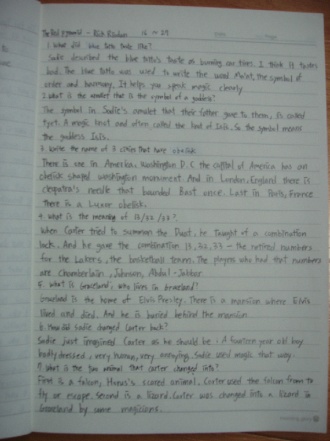 The Red Pyramid - Rick Riordan 16 ~ 29
1. What did blue tatto taste like?
Sadie described the blue tatto's taste as burning car tires. I think it tastes
bad. The blue tatto was used to write the word Ma'at, the symbol of
order and harmony. It helps you speak magic clearly
2. What is the amulet that is the symbol of a goddess?
The symbol in Sadie's amulet that their father gave to them, is called
tyet. A magic knot and often called the knot of Isis. So the symbol means
the goddess Isis.
3. Write the name of 3 cities that have obelisk
There is one in America, Washington D.C the capital of America has an
obelisk shaped Washington monument. And in London, England there is
cleopatra's needle that bounded Bast once. Last in Paris, France
There is a Luxor obelisk.
4. what is the meaning of 13/32/33?
When Carter tried to summon the Duat, he thought of a combination
lock. And he gave the combination 13, 32, 33 - the retired numbers
for the Lakers, the basketball team. The players who had that numbers
are Chamberlain, Johnson, Abdul-Jabbar.
5. What is Graceland, who lives in Graceland?
Graceland is the home of Elvis Presley. There is a mansion where Elvis
lived and died. And he is buried behind the mansion
6. How did Sadie changed Carter back?
Sadie just imagined Carter as he should be: A fourteen year old boy
badly dressed, very human, very annoying. Sadie used magic that way.
7. What is the two animal that carter changed into?
First is a falcon, Horus's sacred animal. Carter used the falcon from to
fly or escape. Second is a lizard. Carter was changed into a lizard in
Graceland by some magicians.